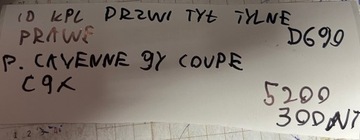 ID KPL DRZWI TYŁ TYLNE
PRAWE D690
P. CAYENNE 9Y COUPE
C9X
5200
300